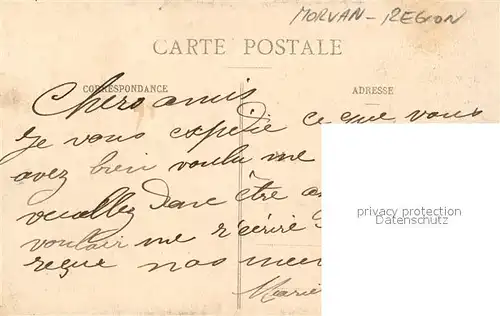 MORVAN - REGION
CARTE POSTALE
CORRESPONDANCE
ADRESSE
Chers amis
Je vous expédie ce que vous
avez bien voulu me
veuillez donc être
vouloir me r'écrire
reçue nos
Marie
privacy protection
Datenschutz